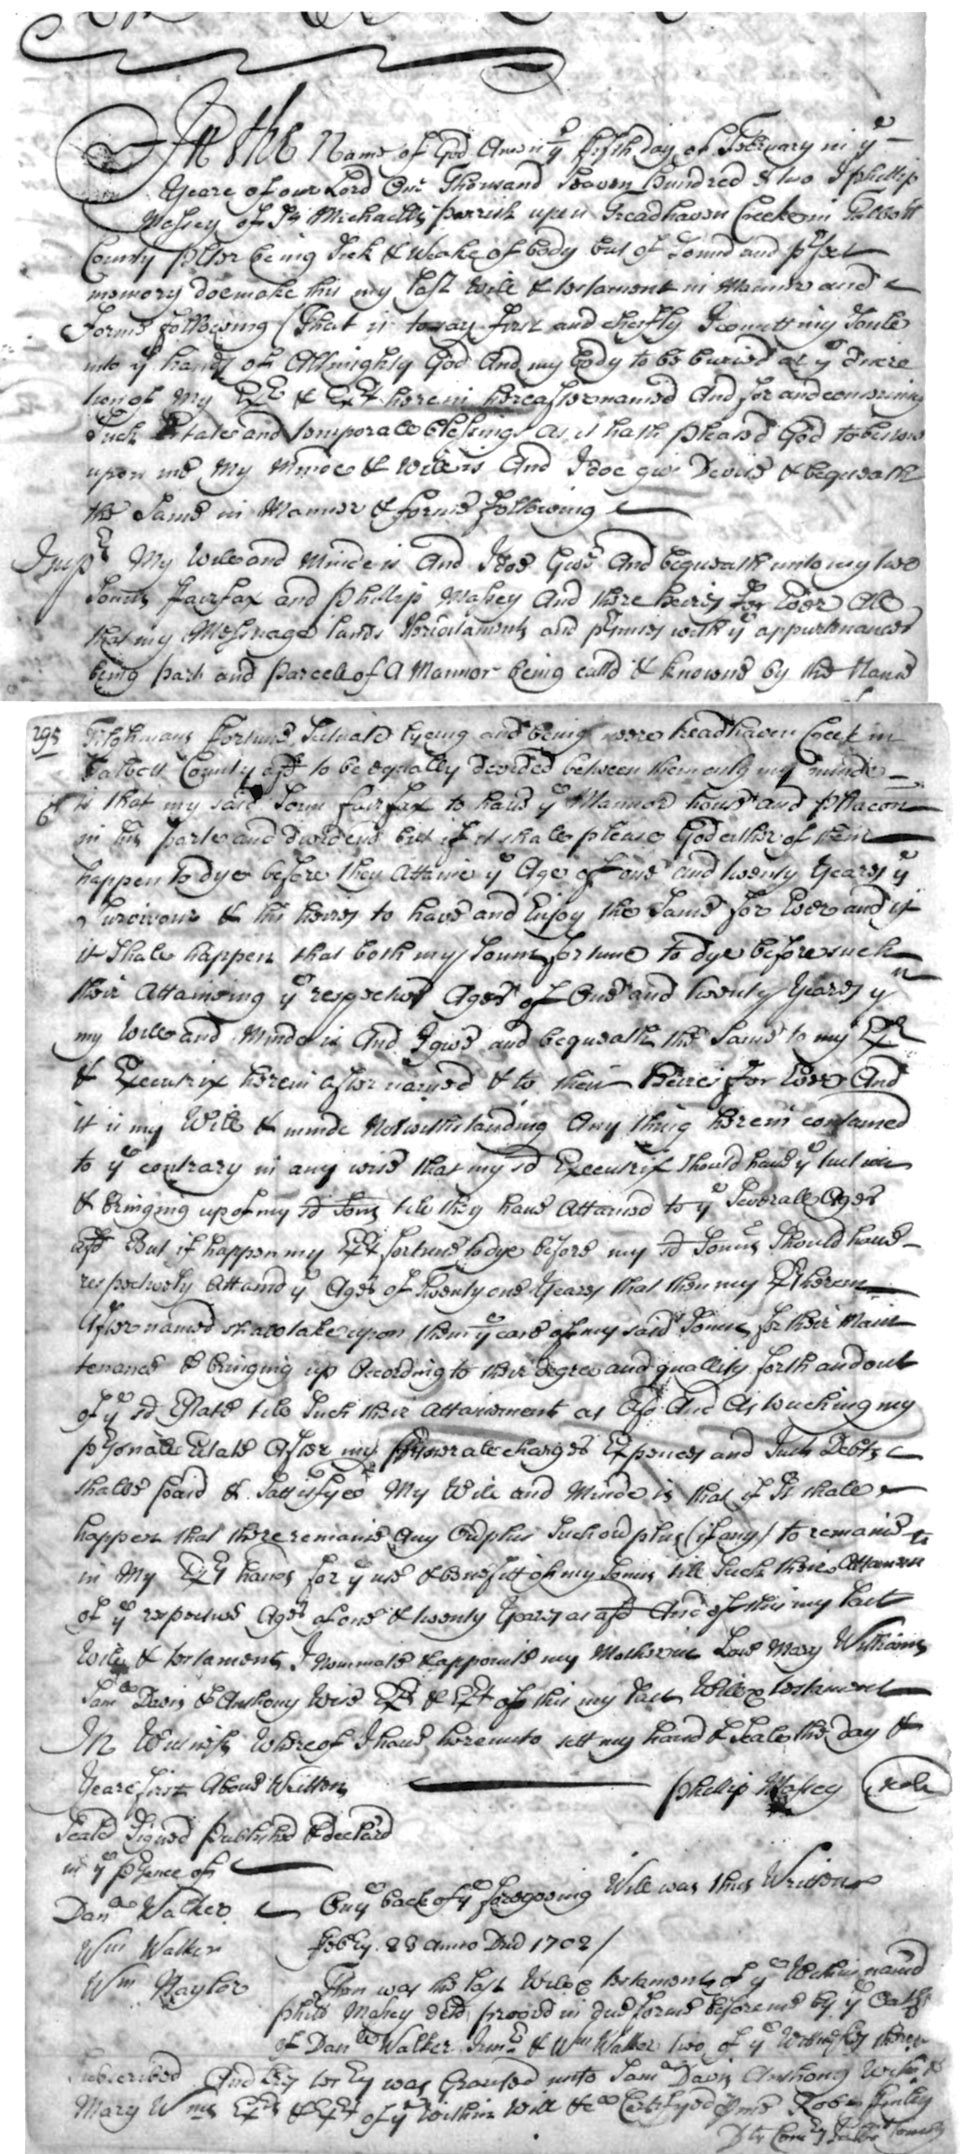 In the Name of God Amen ye fifth day of February in ye
Yeare of our Lord One Thousand Seaven hundred & two I phillip
Massey of St Michaells parrish upon Treadhaven Creeke in Talbott
County plter being Sick & Weake of body but of Sound and pfect
memory doe make this my last Will & testament in Manner and
forme following (That is to say first and cheifly I comitt my Soule
into ye hands of Allmighty God And my body to be buried at ye discre
tion of My Exrs & Exx herein hereafter named And for and concerning
Such Estate and temporale blessings as it hath pleasd God to bestow
upon me My Minde & Will is And I doe give Devise & bequeath
the Same in Manner & forme following
Impr My Will and Minde is And I doe Give And bequeath unto my two
Sonns Fairfax and Phillip Masey And there heires for Ever All
that my Messuage lands Heriditaments and pmises with ye appurtenances
being part and parcell of A Mannor being calld & knowne by the Name
295 Tilghmans Fortune Scituate Lyeing and being neere treadhaven Creek in
Talbott County afsd to be equally devided between them only my minde
is that my said Sonn Fairfax to have ye Mannor house and Plantacon
in his parte and dividend but if it shall please God either of them
happen to dye before they Attaine ye Age of one and twenty Yeares ye
Survivour & his heires to have and Enjoy the Same for Ever and if
it Shall happen that both my Sonns fortune to dye before such
their Attaineing ye respective Ages of One and twenty Yeares yn
my Will and Minde is And I give and bequeath the Same to my Exrs
& Executrix herein after named & to their Heires for Ever And
it is my Will & minde Notwithstanding Any thing herein contained
to ye contrary in any wise that my sd Executrix Should have ye tuition
& Bringing up of my sd Sonns till they have Attained to ye Severall Ages
afsd But if happen my Exx fortune to dye before my sd Sonns Should have
respectively Attaind ye Ages of twenty one Yeares that then my Exrs herein
After named shall take upon them ye care of my said Sonns for their Main
tenance & bringing up According to their degree and quallity forth and out
of ye sd Estate till Such their attainement as Afsd And As touching my
psonall Estate After my funerale charges Expences and Such Debts
shall be paid & Sattisfyed My Will and Minde is that if It shall
happen that there remaine Any Overplus Such overplus (if any) to remaine
in My Exx hands for ye use & benefitt of my Sonns till Such their Attainmt
of ye respective Ages of one & twenty Yeares as afsd And of this my last
Will & testament I Nominate & appointe my Mother in Law Mary Williams
Saml Davis & Anthony Wise Exrs & Exx of this my last Will & testament
In Wittness Whereof I have hereunto sett my hand & Seale the day &
Yeare first Above Written Phillip Masey Seale
Seald Signed Published & declard
in ye psence of
Danll Walker On ye back of ye foregoeing Will was thus Written
Wm Walker Febry 22 Anno Dnd 1702/
Wm Naylor Then was the last Will & testament of ye Within named
Phill Masey decd proved in due forme before me by ye Oaths
of Danll Walker Junr & Wm Walker two of ye Wittnesses there
Subscribed And Ltrs testy was Granted unto Saml Davis Anthony Wise &
Mary Wms Exrs & Exx of ye Within Will &ca Certifyed p me Robt Finley
Dty Comry Talbt County